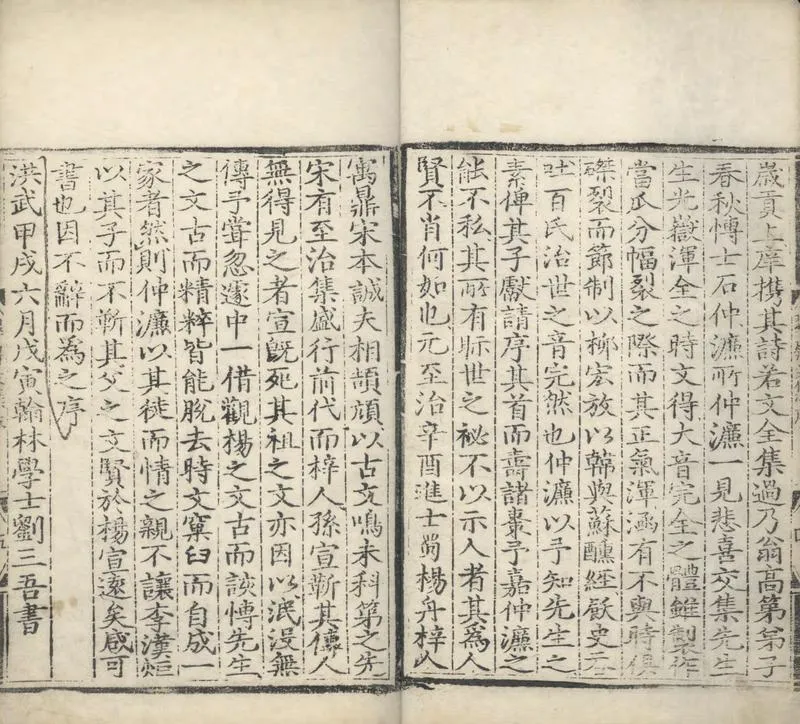 歲貢上庠携其詩若文全集過乃翁高第弟子
春秋愽士石仲濂所仲濂一見悲喜交集先生
生光嶽渾全之時文得大音完全之體雖製作
當瓜分幅裂之際而其正氣渾涵有不與時俱
磔裂而節制以柳宏放以韓與蘇醺經飫史
吐百氏治世之音完然也仲濂以予知先生之
素俾其子獻請序其首而壽諸棗予嘉仲濂之
能不私其所有眎世之祕不以示人者其為人
賢不肖何如也元至治辛酉進士蜀楊舟梓人
寓鼎宋本誠夫相頡頏以古文鳴未科第之先
宋有至治集盛行前代而梓人孫宣靳其人
無得見之者宣旣死其祖之文亦因以泯没無
傳予嘗忽遽中一借觀楊之文古而談愽先生
之文古而精粹皆能脫去時文窠臼而自成一
家者然則仲濂以其徒而情之親不讓李漢炬
以其子而不靳其父之文賢於楊宣遼矣咸可
書也因不辭而為之序
洪武甲戌六月戊寅翰林學士劉三吾書